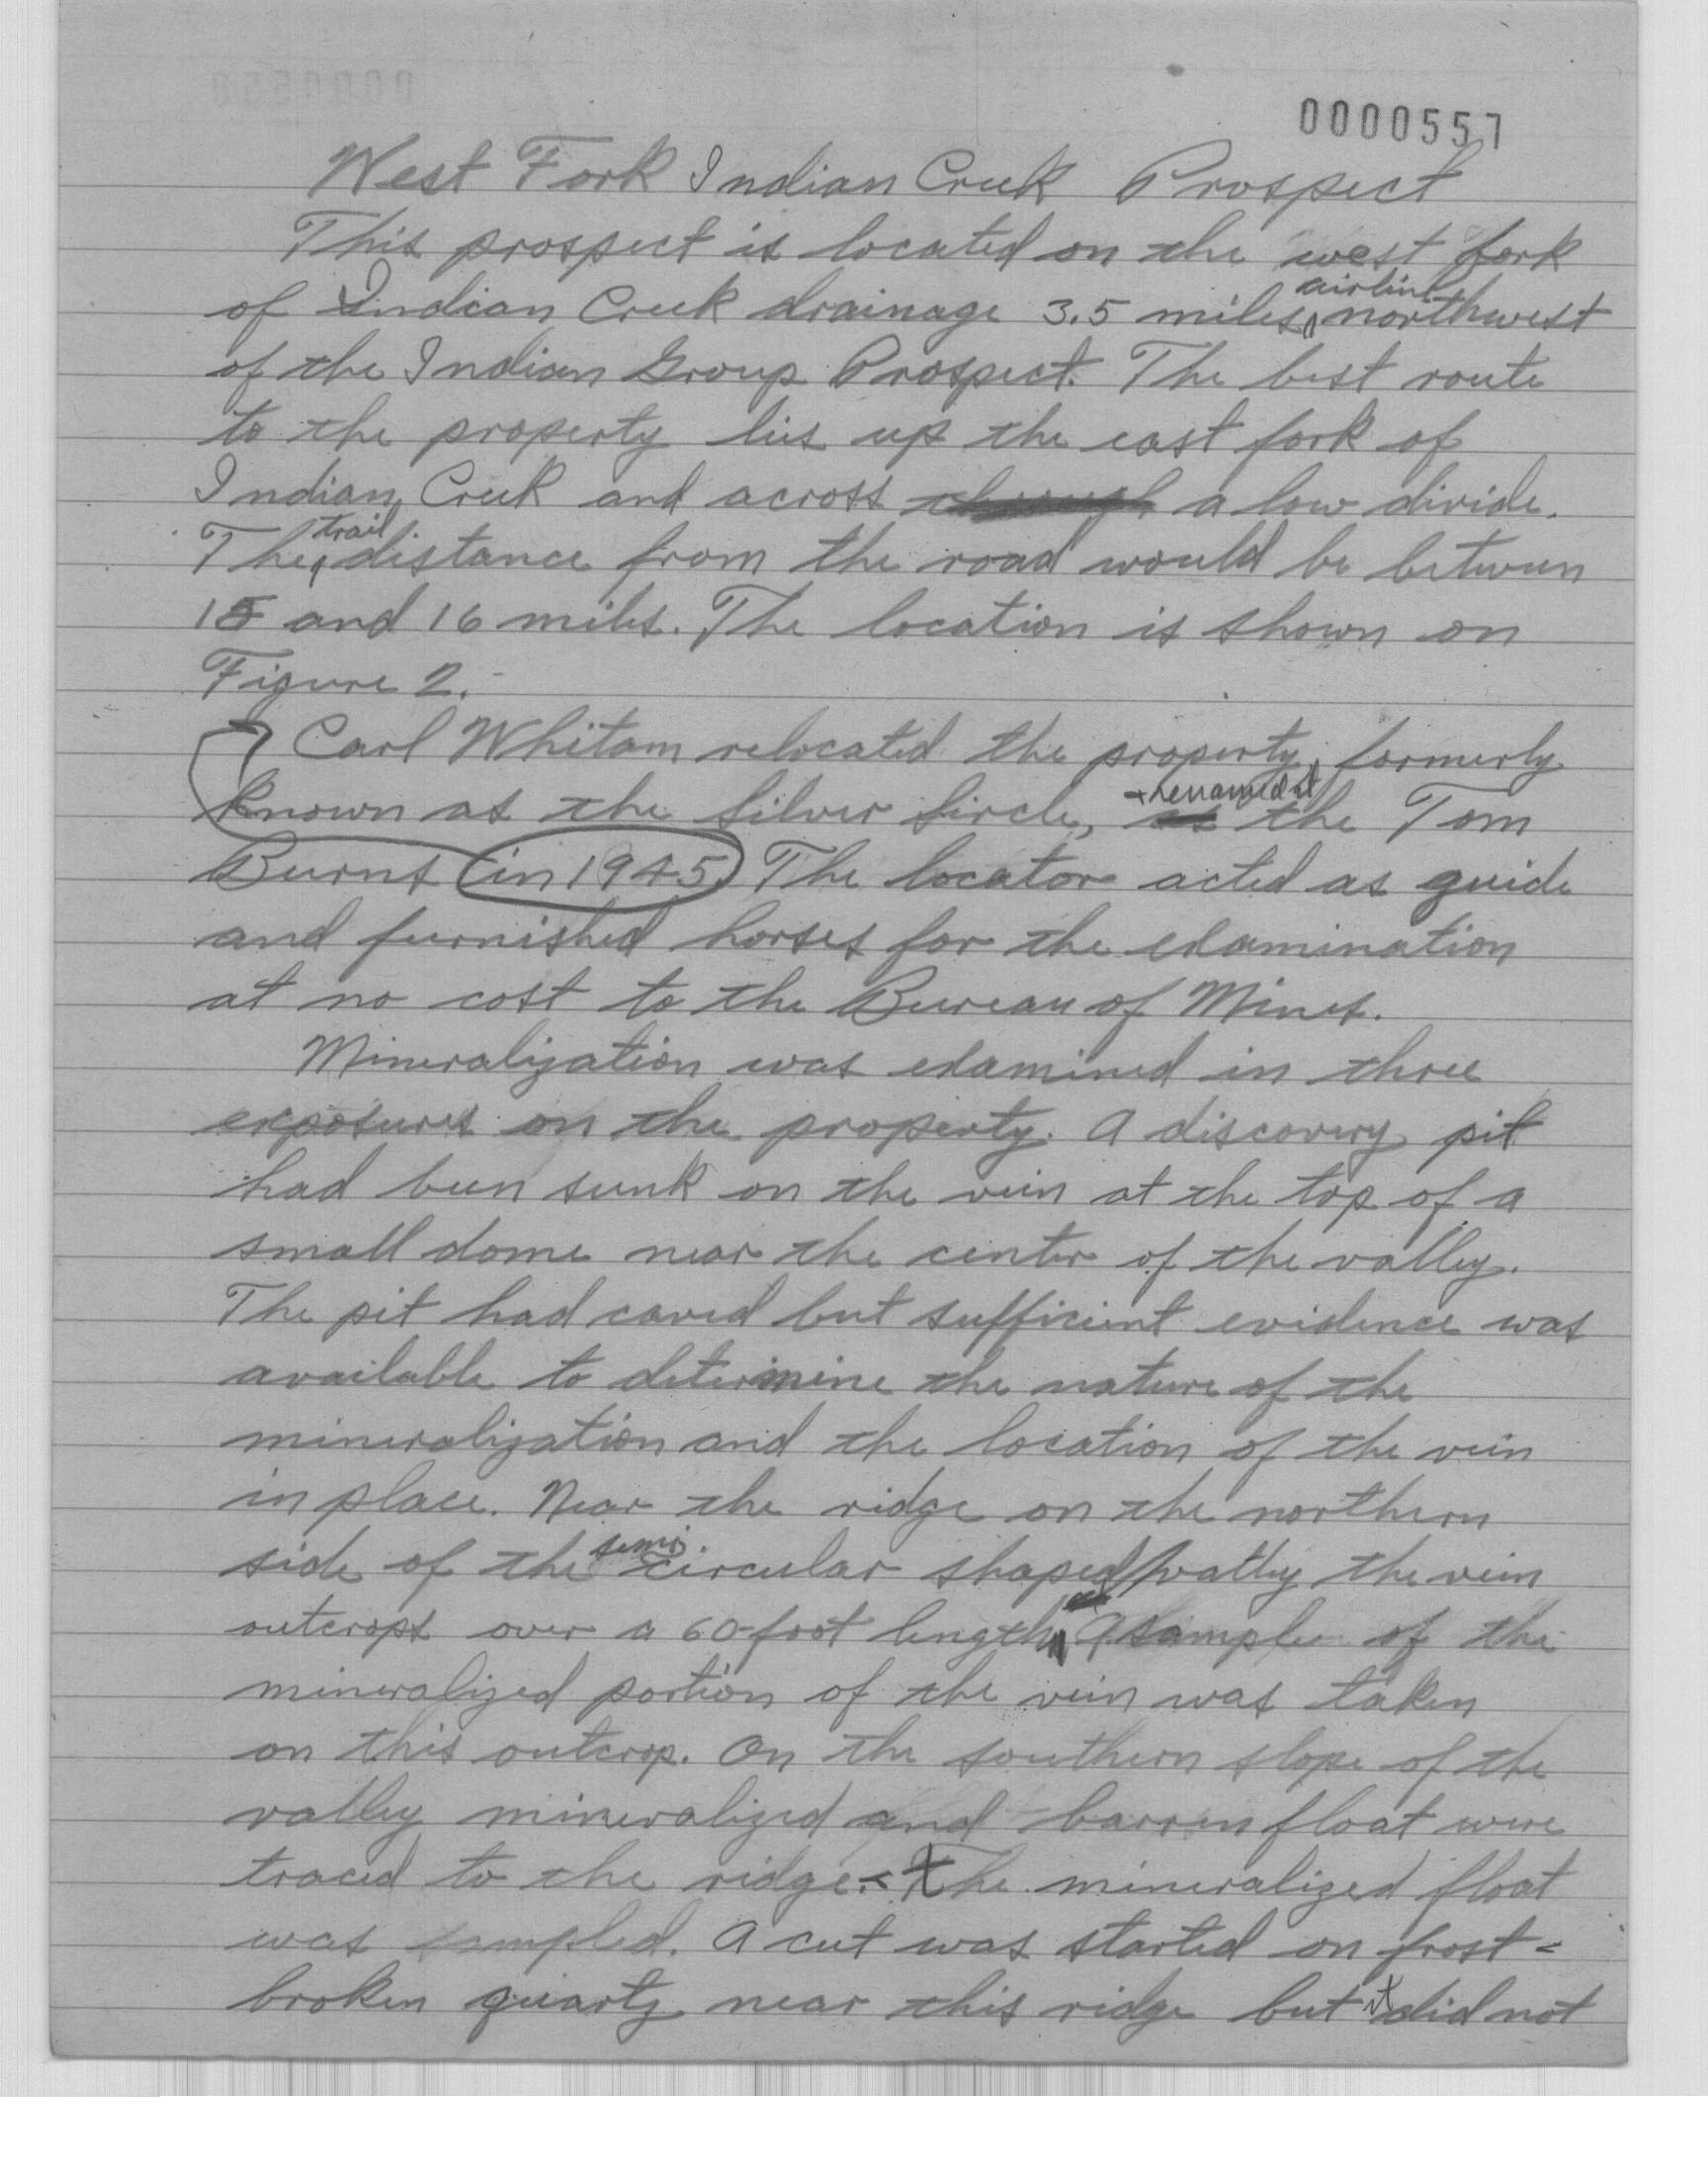 0000557
West Fork Indian Creek Prospect
This prospect is located on the west fork
of Indian Creek drainage 3.5 miles airline northwest
of the Indian Group Prospect. The best route
to the property lies up the east fork of
Indian Creek and across through a low divide.
The trail distance from the road would be between
15 and 16 miles. The location is shown on
Figure 2.
Carl Whitam relocated the property, formerly
known as the Silver Sircle, as + renamed it the Tom
Burns in 1945. The locator acted as guide
and furnished horses for the examination
at no cost to the Bureau of Mines.
Mineralization was examined in three
exposures on the property. A discovery pit
had been sunk on the vein at the top of a
small dome near the center of the valley.
The pit had caved but sufficient evidence was
available to determine the nature of the
mineralization and the location of the vein
in place. Near the ridge on the northern
side of the semi-circular shaped valley the vein
outcrops over a 60-foot length. A sample of the
mineralized portion of the vein was taken
on this outcrop. On the southern slope of the
valley mineralized and barren float were
traced to the ridge. The mineralized float
was sampled. A cut was started on frost-
broken quartz near this ridge but it did not